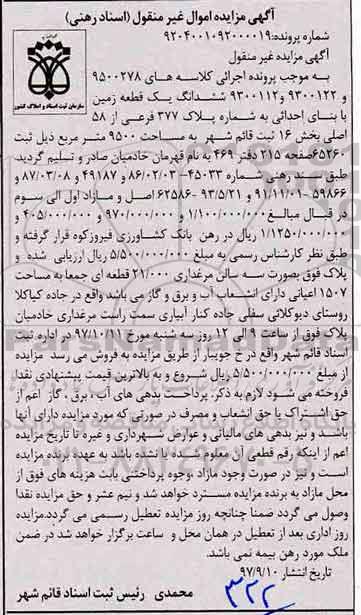 آگهی مزایده اموال غیر منقول (اسناد رهنی)
شماره پرونده:۹۲۰۴۰۰۱۰۹۲۰۰۰۰۱۹
آگهی مزایده غیر منقول
به موجب پرونده اجرائی کلاسه های ۹۵۰۰۲۷۸
و ۹۳۰۰۱۲۲ و ۹۳۰۰۱۱۲ ششدانگ یک قطعه زمین
با بنای احداثی به شماره پلاک ۳۷۷ فرعی از ۵۸
اصلی بخش ۱۶ ثبت قائم شهر به مساحت ۹۵۰۰ متر مربع ذیل ثبت
۶۵۲۶۰صفحه ۲۱۵ دفتر ۴۶۹ به نام قهرمان خادمیان صادر و تسلیم گردید.
طبق سند رهنی شماره ۴۵۰۳۳-۸۶/۰۲/۰۳ و ۴۹۱۸۷ و ۸۷/۰۳/۰۸ و
۵۹۸۶۶ -۹۱/۱۱/۰۱ و ۹۳/۵/۲۱ -۶۲۵۸۶ اصل و مازاد اول الی سوم
در قبال مبالغ ۱/۱۰۰/۰۰۰/۰۰۰ و ۹۷۰/۰۰۰/۰۰۰ و ۴۰۵/۰۰۰/۰۰۰ و
۱/۱۲۵۰/۰۰۰/۰۰۰ ریال در رهن بانک کشاورزی فیروزکوه قرار گرفته و
طبق نظر کارشناس رسمی به مبلغ ۵/۵۰۰/۰۰۰/۰۰۰ ریال ارزیابی شده و
پلاک فوق بصورت سه سالن مرغداری ۲۱/۰۰۰ قطعه ای جمعا به مساحت
۱۵۰۷ اعیانی دارای انشعاب آب و برق و گاز می باشد واقع در جاده کیاکلا
روستای دیوکلائی سفلی جاده کنار آبیاری سمت راست مرغداری خادمیان
پلاک فوق از ساعت ۹ الی ۱۲ روز سه شنبه مورخ ۹۷/۱۰/۱۱ در اداره ثبت
اسناد قائم شهر واقع در خ جویبار از طریق مزایده به فروش می رسد مزایده
از مبلغ ۵/۵۰۰/۰۰۰/۰۰۰ ریال شروع و به بالاترین قیمت پیشنهادی نقدا
فروخته می شود لازم به ذکر، پرداخت بدهی های آب ، برق ، گاز اعم از
حق اشتراک یا حق انشعاب و مصرف در صورتی که مورد مزایده دارای آنها
باشد و نیز بدهی های مالیاتی و عوارض شهرداری و غیره تا تاریخ مزایده
اعم از اینکه رقم قطعی آن معلوم شده یا نشده باشد به عهده برنده مزایده
است و نیز در صورت وجود مازاد ،وجوه پرداختی بابت هزینه های فوق از
محل مازاد به برنده مزایده مسترد خواهد شد و نیم عشر و حق مزایده نقدا
وصول می گردد ضمنا چنانچه روز مزایده تعطیل رسمی می گردد.مزایده
روز اداری بعد از تعطیل در همان محل و ساعت برگزار خواهد شد در ضمن
ملک مورد رهن بیمه نمی باشد.
تاریخ انتشار ۹۷/۹/۱۰
محمدی رئیس ثبت اسناد قائم شهر
۳۲۲
سازمان ثبت اسناد و املاک کشور